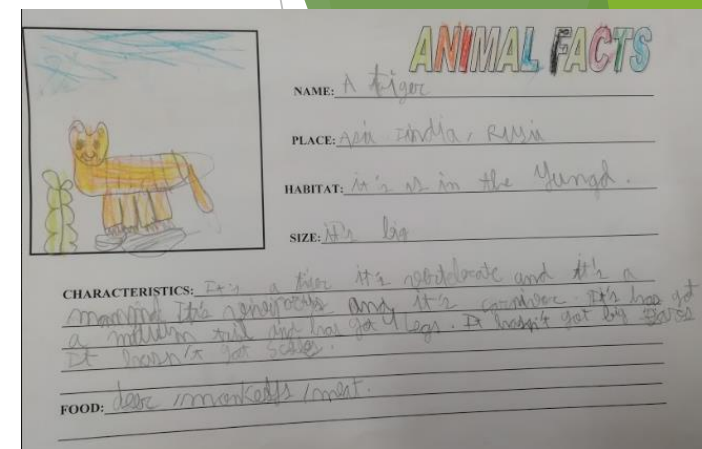 ANIMAL FACTS
NAME: A tiger
PLACE: Asia India, Rusia
HABITAT: it's is in the Yungd.
SIZE: it's big
CHARACTERISTICS: It's a tiger it's vertebrate and it's a
mammal It's viviparous and it's carnivore. It's has got
a medium tail and has got 4 legs. It hasn't got big
It hasn't got scales.
FOOD: deer / monkeys / meat.